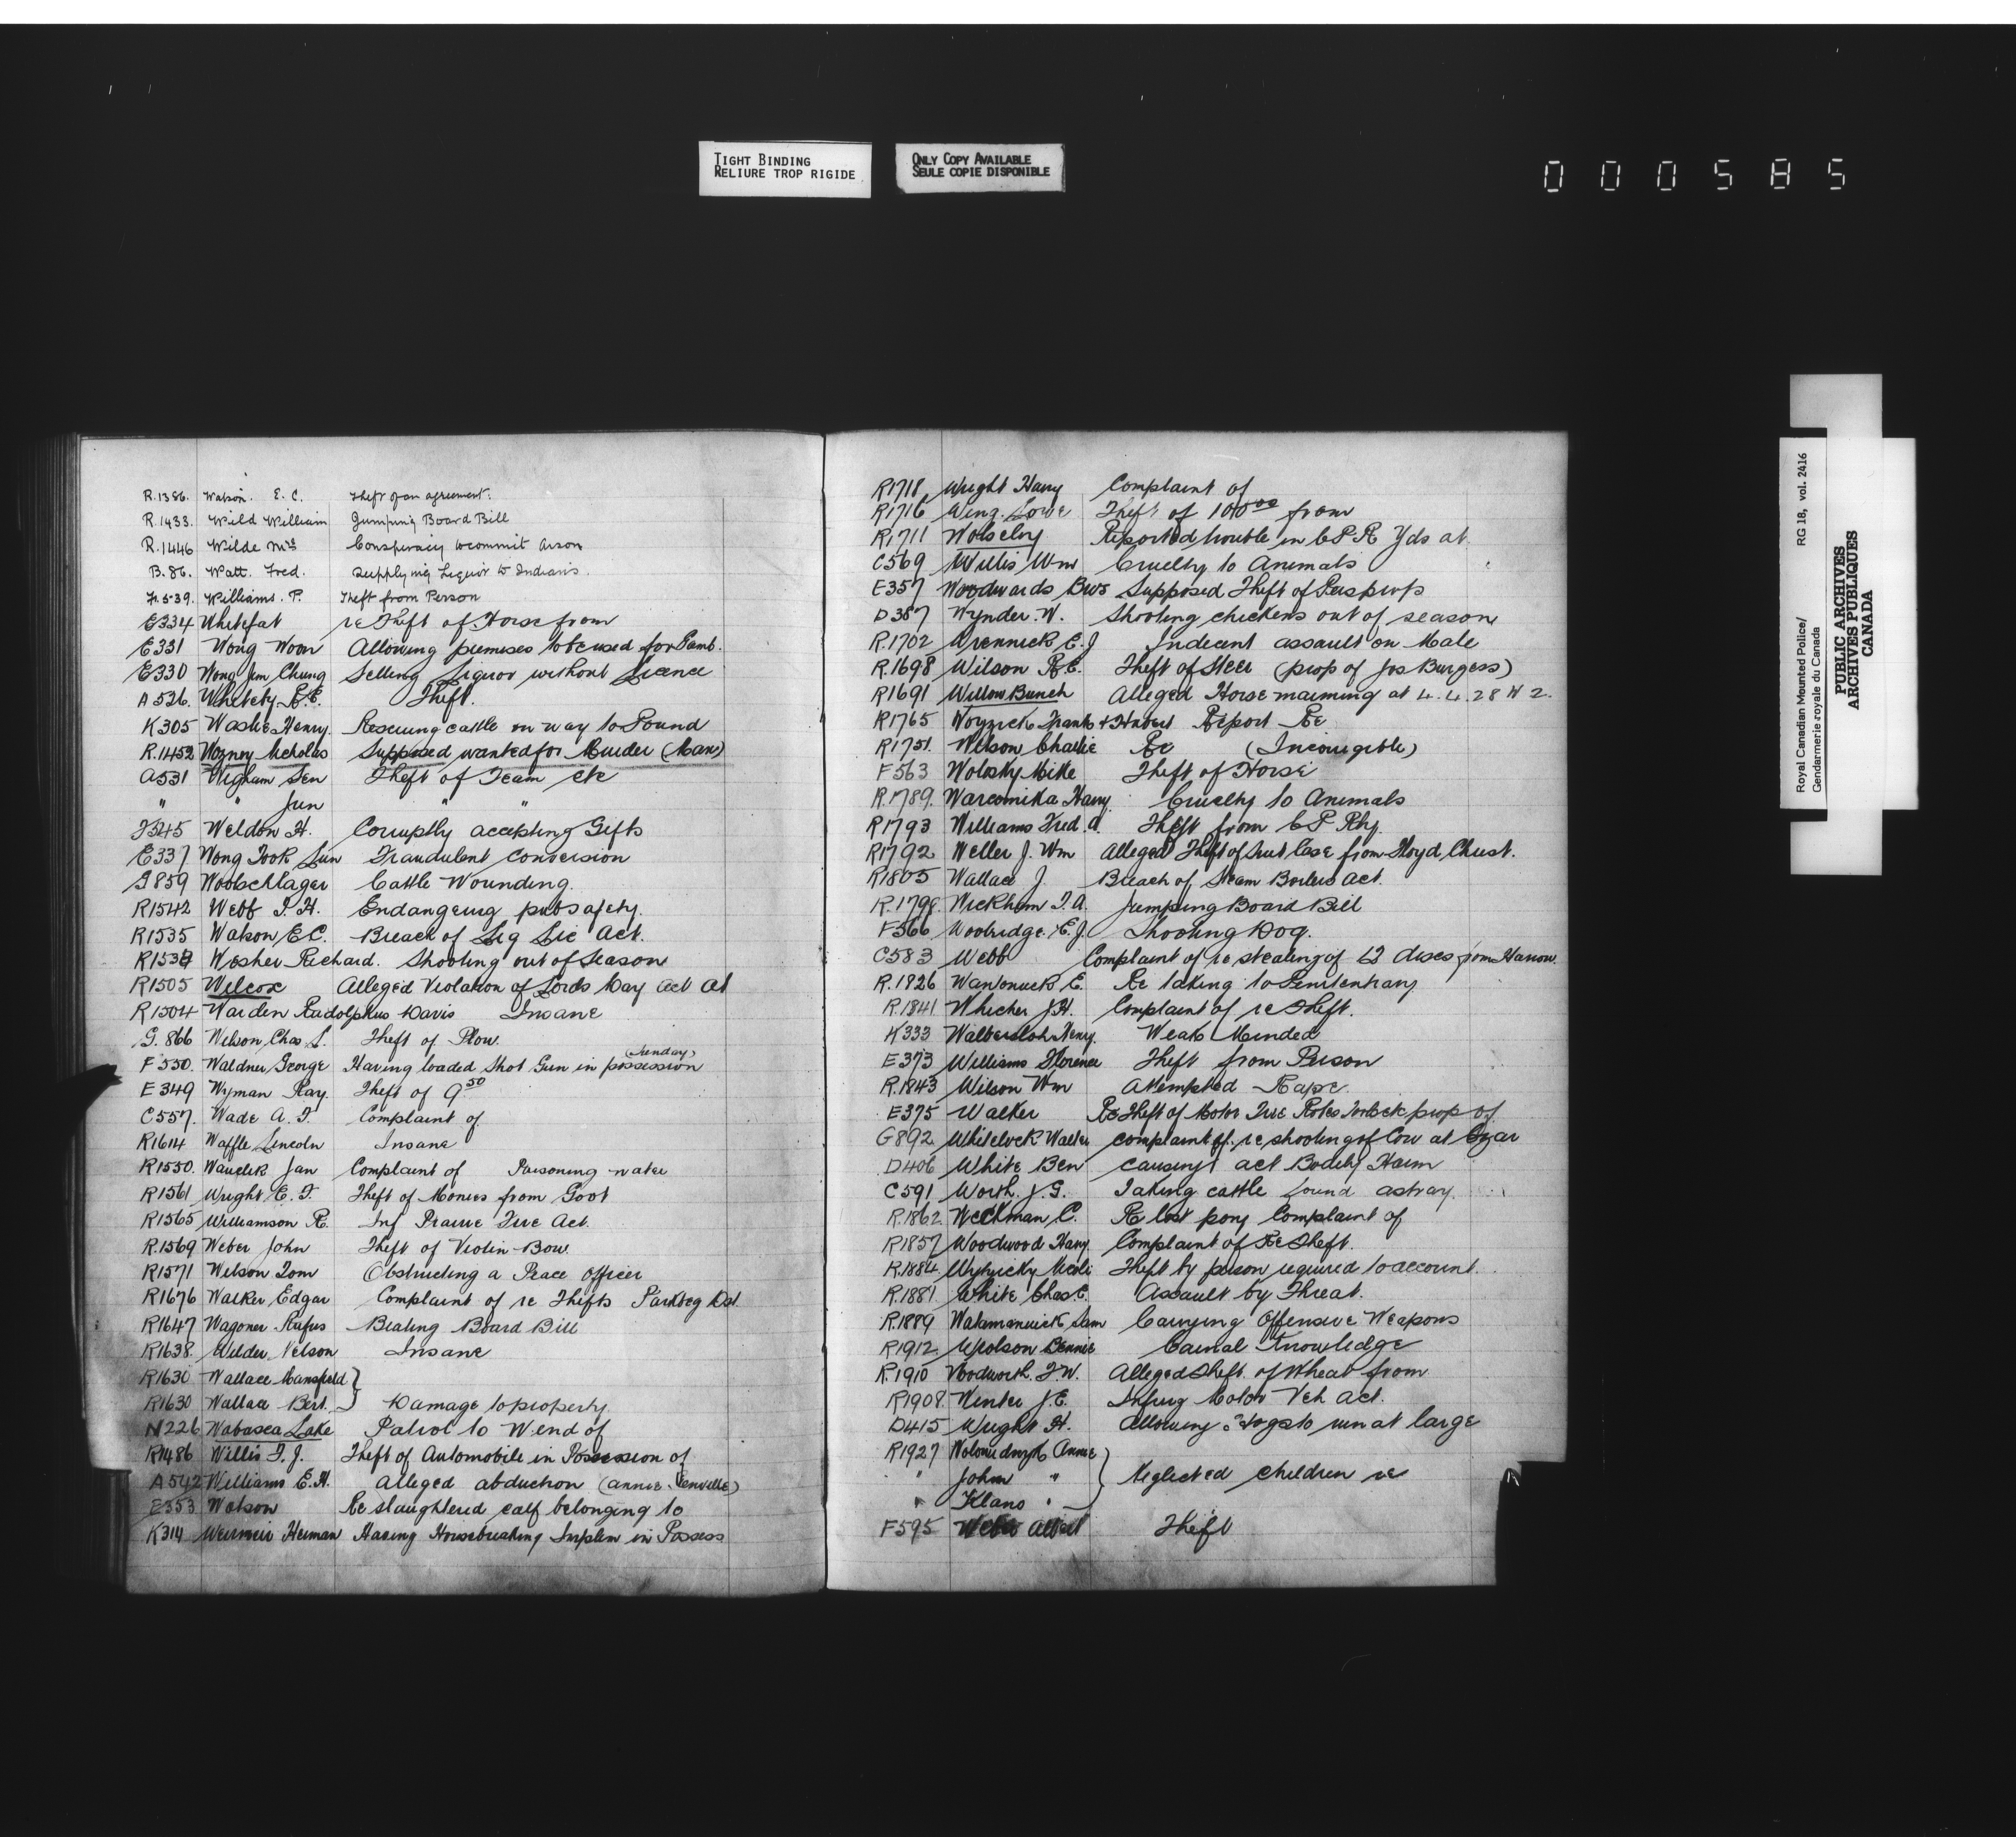 TIGHT BINDING
RELIURE TROP RIGIDE
ONLY COPY AVAILABLE
SEULE COPIE DISPONIBLE
000585
R.1386. Watson. E. C. Theft of an agreement.
R.1433. Wild William Jumping Board Bill
R.1446 Wilde Mrs Conspiracy to commit Arson
B.86. Watt. Fred. Supplying Liquor to Indians.
F.539. Williams. P. Theft from Person
E334 Whitefat re Theft of Horse from
E331 Wong Woon Allowing premises to be used for Gamb.
E330 Wong Jim Chung Selling Liquor without Licence
A536. Whiteby R.E. Theft.
K305 Waske Henry. Rescuing cattle on way to Pound
R.1452 Wozney Nicholas Supposed wanted for Murder (Man)
A531 Wigham Sen Theft of Team etc
" " Jun "
J345 Weldon H. Corruptly accepting Gifts
E337 Wong Took Sun Fraudulent Conversion
G859 Woolschlager Cattle Wounding.
R1542 Webb T. H. Endangering pub safety.
R1535 Watson E.C. Breach of Liq Lic Act.
R1538 Wesher Richard. Shooting out of Season
R1505 Wilcox Alleged Violation of Lords Day Act at
R1504 Warden Rudolphus Davis Insane
G.866 Wilson Chas L. Theft of Plow.
F550. Waldner George Having loaded Shot Gun in possession (Sunday)
E349 Wyman Ray. Theft of 9.50
C557. Wade A. T. Complaint of
R1614 Waffle Lincoln Insane
R1550. Wauchk Jan Complaint of Poisoning water
R1561 Wright E. T. Theft of Monies from Govt
R1565 Williamson R. Inf Prairie Fire Act.
R.1569 Weber John Theft of Violin Bow.
R1571 Wilson Tom Obstructing a Peace Officer
R1676 Walker Edgar Complaint of re Thefts Parkbeg Dist
R1647 Wagoner Rufus Beating Board Bill
R1638. Wilder Nelson Insane
R1630 Wallace Mansfield }
R1630 Wallace Bert. } Damage to property.
N226 Wabasca Lake Patrol to W end of
R1486 Willis T. J. Theft of Automobile in Possession of
A542 Williams E.H. Alleged abduction (Annie Venville)
E353 Watson Re slaughtered calf belonging to
K314 Weirmeir Herman Having Housebreaking Implem in Possess
R1718 Wright Harry Complaint of
R1716 Wing. Lowe Theft of 100.00 from
R1711 Wolseley Reported trouble in C P R Yds at
C569 Willis Wm Cruelty to Animals
E357 Woodwards Bros Supposed Theft of Peas prop
D387 Wynder. W. Shooting chickens out of season
R.1702 Wrennick E. J Indecent assault on Male
R.1698 Wilson R.E. Theft of Steer (prop of Jos Burgess)
R1691 Willow Bunch Alleged Horse maiming at 4. 4. 28 W 2.
R1765 Woyzick Frank + Hubert Report Re
R1751. Wilson Charlie Re (Incorrigible)
F563 Wolosky Mike Theft of Horse
R.1789. Warcomika Harry. Cruelty to Animals
R1793 Williams Fred. A. Theft from C P Rly.
R1792 Weller J. Wm Alleged Theft of Suit Case from Floyd Christ.
R1805 Wallace J. Breach of Steam Boilers Act.
R.1798. Wickham T. A. Jumping Board Bill
F566 Woolridge. E.J. Shooting Dog.
C583 Webb Complaint of re stealing of 12 discs from Harrow.
R.1826 Wawonuck E. Re taking to Penitentiary
R.1841 Whicher J.H. Complaint of re Theft.
K333 Walbersloh Henry. Weak Minded
E373 Williams Florence Theft from Person
R.1843 Wilson Wm Attempted Rape.
E375 Walker Re Theft of Motor Tire prop of
G892 Whitelock Walter complaint of. re shooting of Cow at
D406 White Ben causing act Bodily Harm
C591 Worth. J. G. Taking cattle found astray.
R.1862 Weckman C. Re lost pony Complaint of
R1857 Woodwood Harry Complaint of Re Theft.
R.1884 Wytricky Theft by person required to account.
R.1881 White Chas E. Assault by Threat.
R.1889 Watamaniuck Sam Carrying Offensive Weapons
R1912 Wolson Bennie Carnal Knowledge
R.1910 Woodworth. F.W. Alleged Theft of Wheat from
R1908. Winter J. E. Infring Motor Veh Act.
D415 Wright H. Allowing Dogs to run at large
R1927 Annie }
" John " } Neglected children re
" Klano " }
F595 Weber Albert Theft
Royal Canadian Mounted Police/ RG 18, vol. 2416
Gendarmerie royale du Canada
PUBLIC ARCHIVES
ARCHIVES PUBLIQUES
CANADA